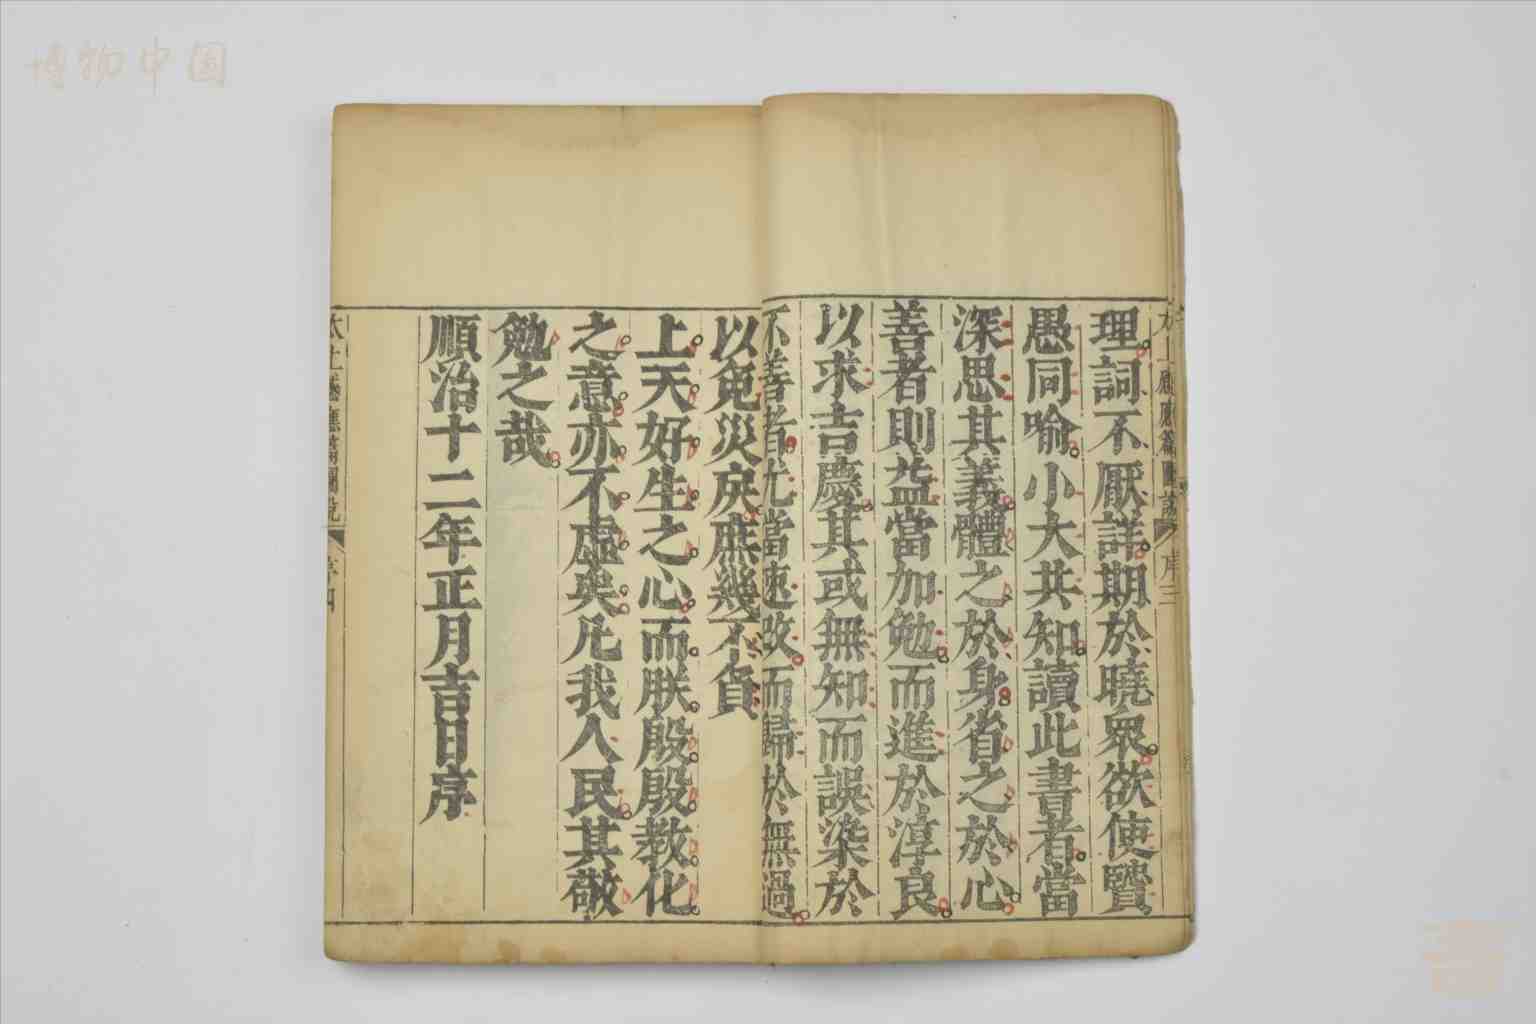 博物中国
理詞不厭詳期於曉眾欲使賢
愚同喻小大共知讀此書者當
深思其義體之於身省之於心
善者則益當加勉而進於淳良
以求吉慶其或無知而誤染於
不善者尤當速改而歸於無過
以免災戾庶幾不負
上天好生之心而朕殷殷教化
之意亦不虛矣凡我人民其敬
勉之哉
順治十二年正月吉日序
太上感應篇圖說 序三
太上感應篇圖說 序四